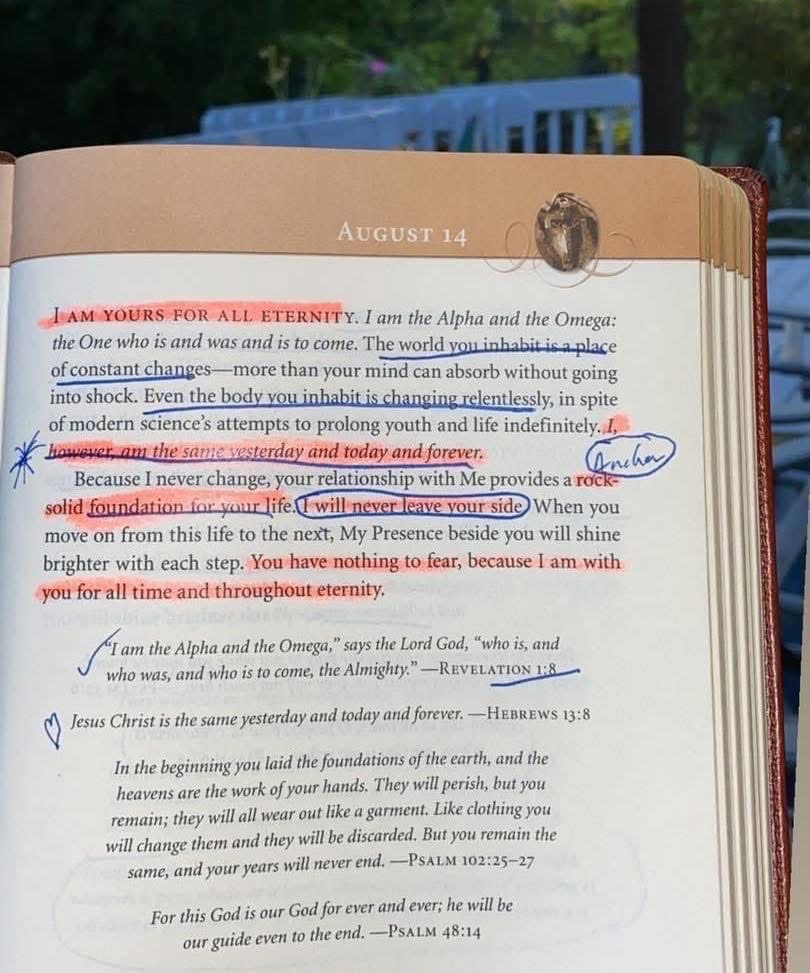 AUGUST 14
I AM YOURS FOR ALL ETERNITY. I am the Alpha and the Omega:
the One who is and was and is to come. The world you inhabit is a place
of constant changes—more than your mind can absorb without going
into shock. Even the body you inhabit is changing relentlessly, in spite
of modern science's attempts to prolong youth and life indefinitely. I,
however, am the same yesterday and today and forever.
Anchor
Because I never change, your relationship with Me provides a rock-
solid foundation for your life. I will never leave your side. When you
move on from this life to the next, My Presence beside you will shine
brighter with each step. You have nothing to fear, because I am with
you for all time and throughout eternity.
"I am the Alpha and the Omega," says the Lord God, "who is, and
who was, and who is to come, the Almighty." —REVELATION 1:8
Jesus Christ is the same yesterday and today and forever. —HEBREWS 13:8
In the beginning you laid the foundations of the earth, and the
heavens are the work of your hands. They will perish, but you
remain; they will all wear out like a garment. Like clothing you
will change them and they will be discarded. But you remain the
same, and your years will never end. —PSALM 102:25–27
For this God is our God for ever and ever; he will be
our guide even to the end. —PSALM 48:14